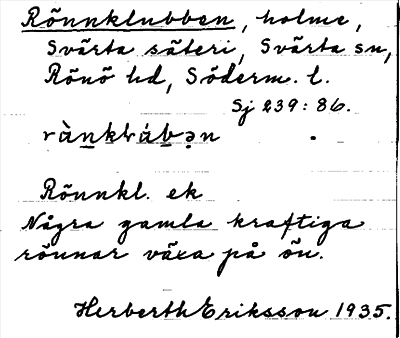 Rönnklubben, holme,
Svärta säteri, Svärta sn,
Rönö hd, Söderm. l.
Sj 239:86.
rànkklábən
Rönnkl. ek
Några gamla kraftiga
rönnar växa på ön.
Herberth Eriksson 1935.